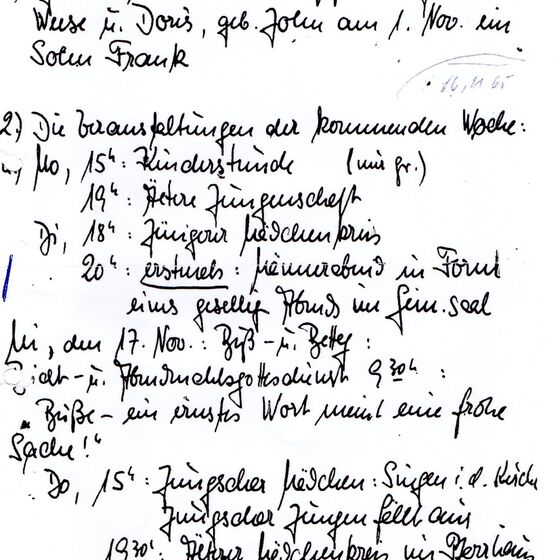 Weise u. Doris, geb. John am 1. Nov. ein
Sohn Frank
16.11.65
2.) Die Veranstaltungen der kommenden Woche:
Mo, 15ʰ: Kinderstunde (nur gr.)
19ʰ: Ältere Jungenschaft
Di, 18ʰ: Jüngerer Mädchenkreis
20ʰ: erstmals: Männerabend in Form
eines gesellig Abends im Gem.saal
Mi, den 17. Nov.: Buß- u. Bettag:
Beicht- u. Abendmahlsgottesdienst 9³⁰ʰ:
"Buße - ein ernstes Wort meint eine frohe
Sache!"
Do, 15ʰ: Jungschar Mädchen: Singen i. d. Kirche
Jungschar Jungen fällt aus
19³⁰: Älterer Mädchenkreis im Pfarrhaus